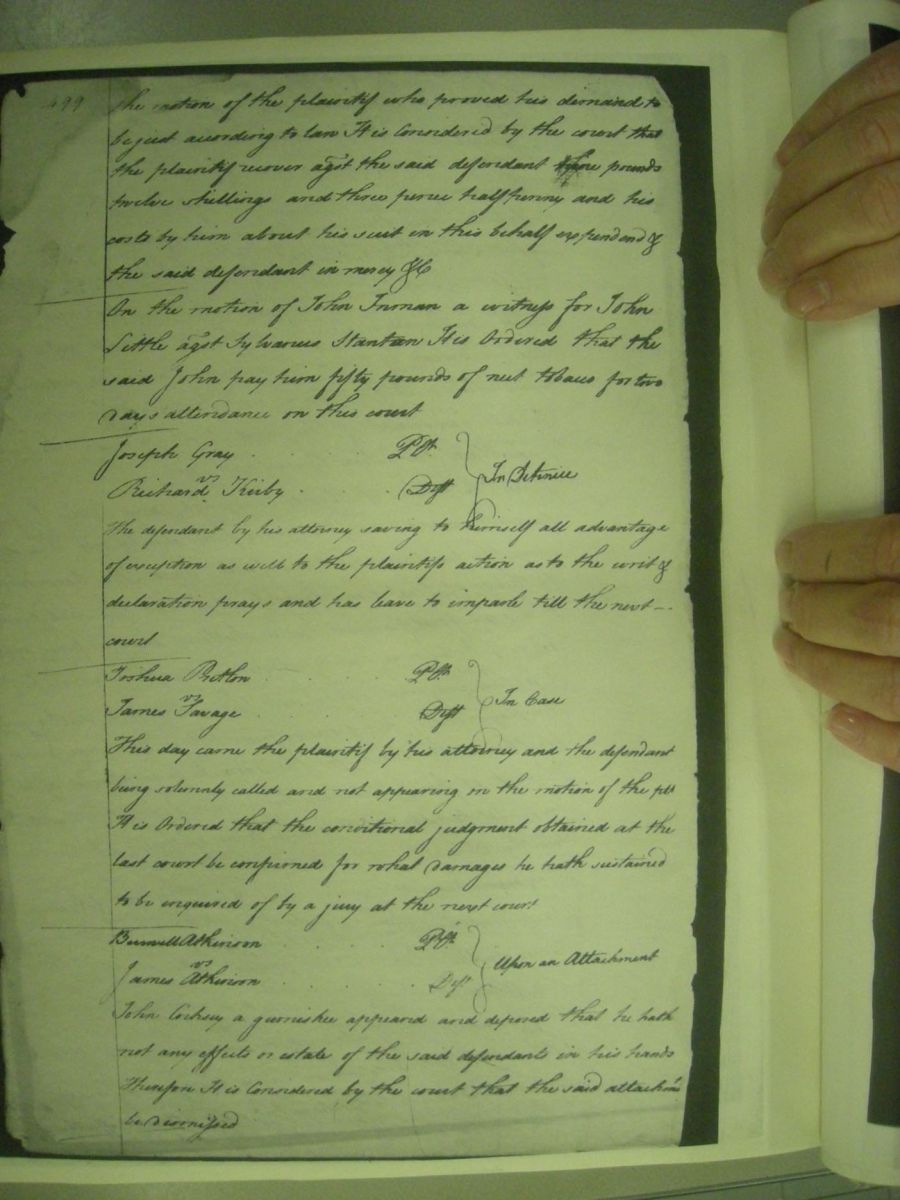 499
the motion of the plaintif who proved his demand to
be just according to law It is Considered by the court that
the plaintif recover agst the said defendant pounds
twelve shillings and three pence half penny and his
costs by him about his suit in this behalf expended &
the said defendant in mercy &c
On the motion of John Inman a witness for John
Little agst Sylvanus Stanton It is Ordered that the
said John pay him fifty pounds of nett tobacco for two
days attendance on this court
Joseph Gray Plt.
vs In Detinue
Richard Kirby Deft
The defendant by his attorney saving to himself all advantage
of exception as well to the plaintifs action as to the writ &
declaration prays and has leave to imparle till the next
court
Joshua Plt.
vs In Case
James Savage Deft
This day came the plaintif by his attorney and the defendant
being solemnly called and not appearing on the motion of the plt
It is Ordered that the conditional judgment obtained at the
last court be confirmed for what damages he hath sustained
to be enquired of by a jury at the next court
Burwell Atkinson Plt.
vs Upon an Attachment
James Atkinson Deft
John Cocksey a garnishee appeared and deposed that he hath
not any effects or estate of the said defendants in his hands
Therefore It is Considered by the court that the said attachmt
be dismissed